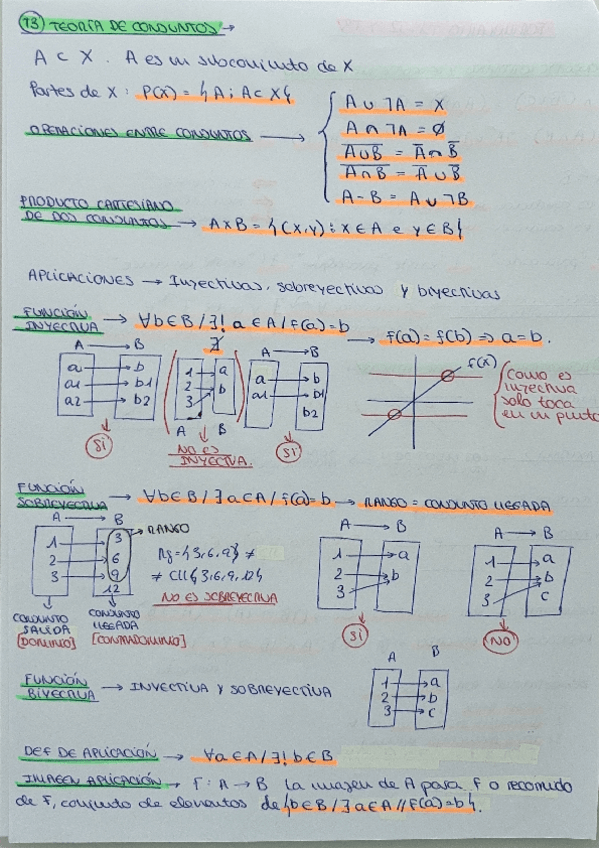 13 TEORÍA DE CONJUNTOS →
A ⊂ X . A es un subconjunto de X
Partes de X : P(X) = { A ; A ⊂ X }
OPERACIONES ENTRE CONJUNTOS →
A ∪ ¬A = X
A ∩ ¬A = ∅
A̅∪̅B̅ = A̅ ∩ B̅
A̅∩̅B̅ = A̅ ∪ B̅
A - B = A ∪ ¬B
PRODUCTO CARTESIANO
DE DOS CONJUNTOS → A×B = { (X,Y) : X ∈ A e Y ∈ B }
APLICACIONES → Inyectivas, sobreyectivas y biyectivas
FUNCIÓN
INYECTIVA → ∀b∈B / ∃! a∈A / f(a)=b → f(a)=f(b) ⇒ a=b.
∄
A → B
a b
a1 b1
a2 b2
SÍ
1 a
2 b
3
A B
NO ES
INYECTIVA.
A → B
a b
a1 b1
b2
SÍ
f(x)
Como es
inyectiva
solo toca
en un punto
FUNCIÓN
SOBREYECTIVA → ∀b∈B / ∃ a∈A / f(a)=b → RANGO = CONJUNTO LLEGADA
A → B
1 3
2 6
3 9
12
RANGO
Rg = {3,6,9} ≠
≠ Cll {3,6,9,12}
NO ES SOBREYECTIVA
CONJUNTO
SALIDA
[DOMINIO]
CONJUNTO
LLEGADA
[CONTRADOMINIO]
A → B
1 a
2 b
3
SÍ
A → B
1 a
2 b
3 c
NO
FUNCIÓN
BIYECTIVA → INYECTIVA Y SOBREYECTIVA
A B
1 a
2 b
3 c
DEF DE APLICACIÓN → ∀a∈A / ∃! b∈B
IMAGEN APLICACIÓN → F : A → B La imagen de A para F o recorrido
de F, conjunto de elementos de {b∈B / ∃ a∈A // F(a)=b}.